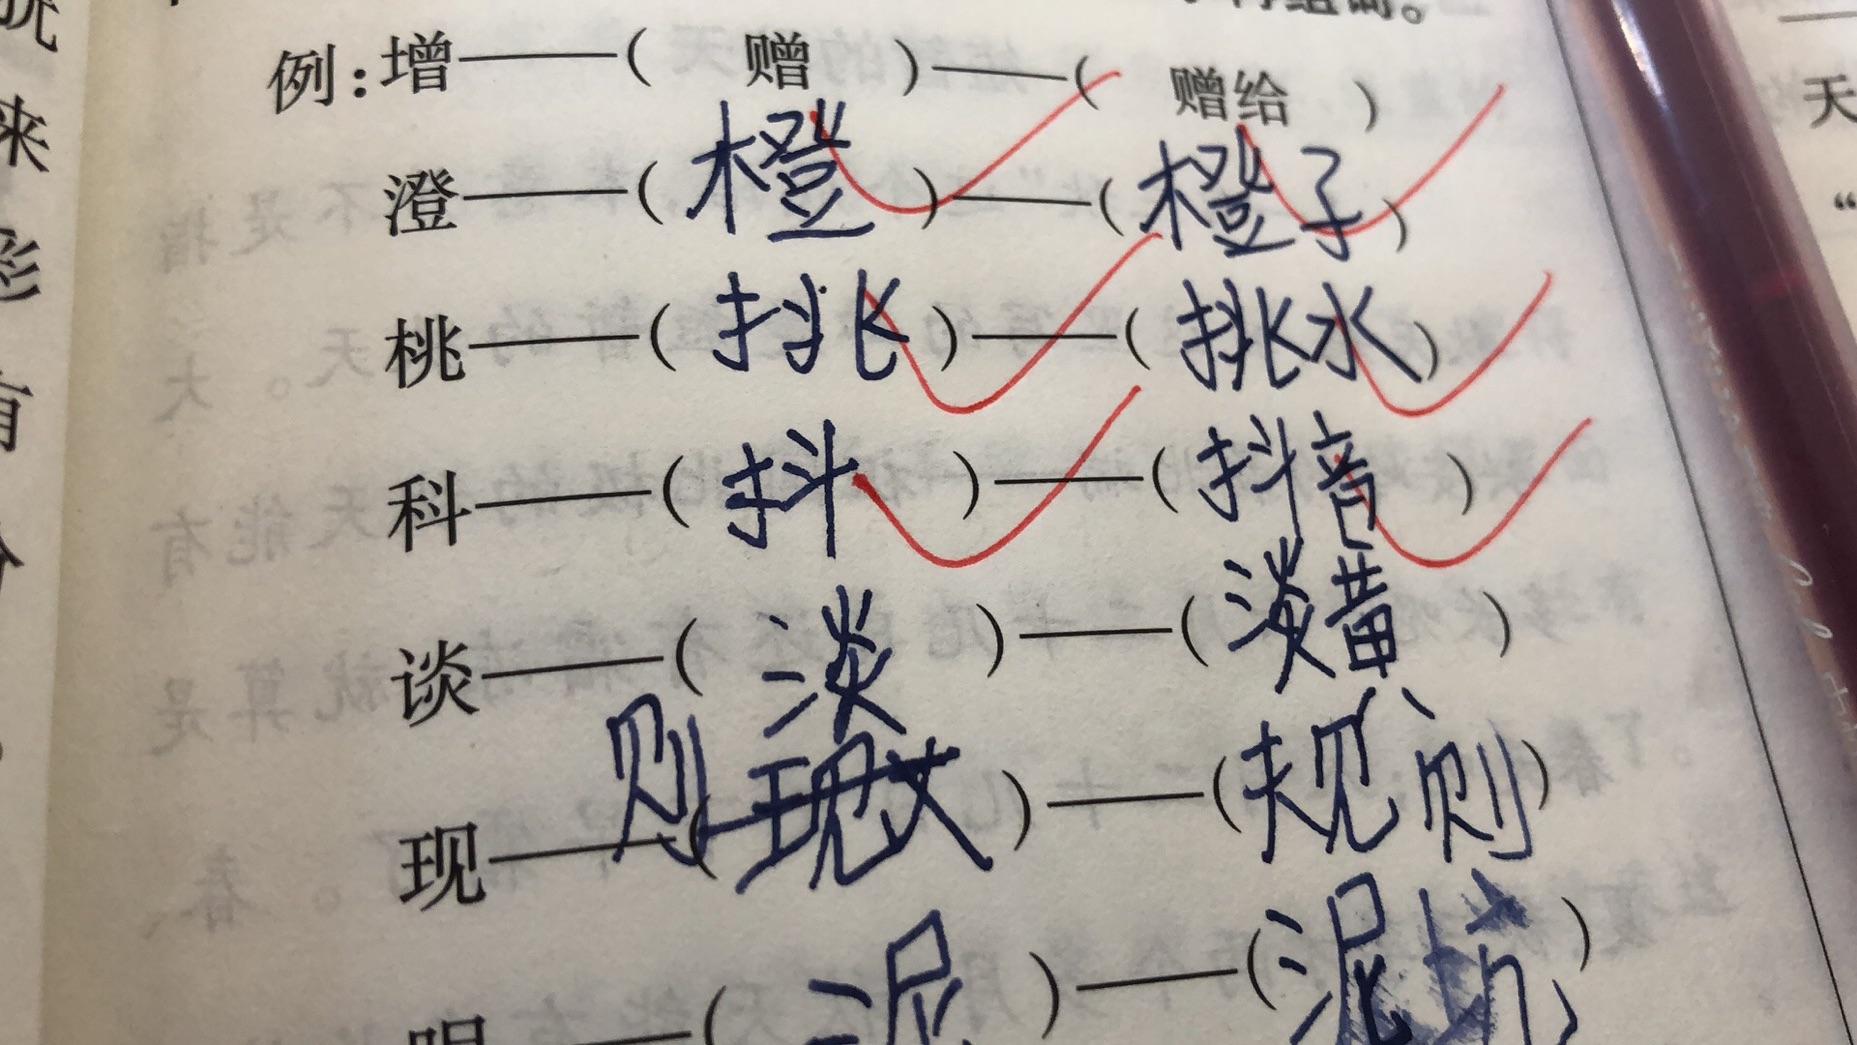 例：增——（ 赠 ）——（ 赠给 ）
澄——（ 橙 ）——（ 橙子 ）
桃——（ 挑 ）——（ 挑水 ）
科——（ 抖 ）——（ 抖音 ）
谈——（ 淡 ）——（ 淡黄 ）
现——（ 则 ）——（ 规则 ）
（ 泥 ）——（ 泥坑 ）
来
彩
有
天